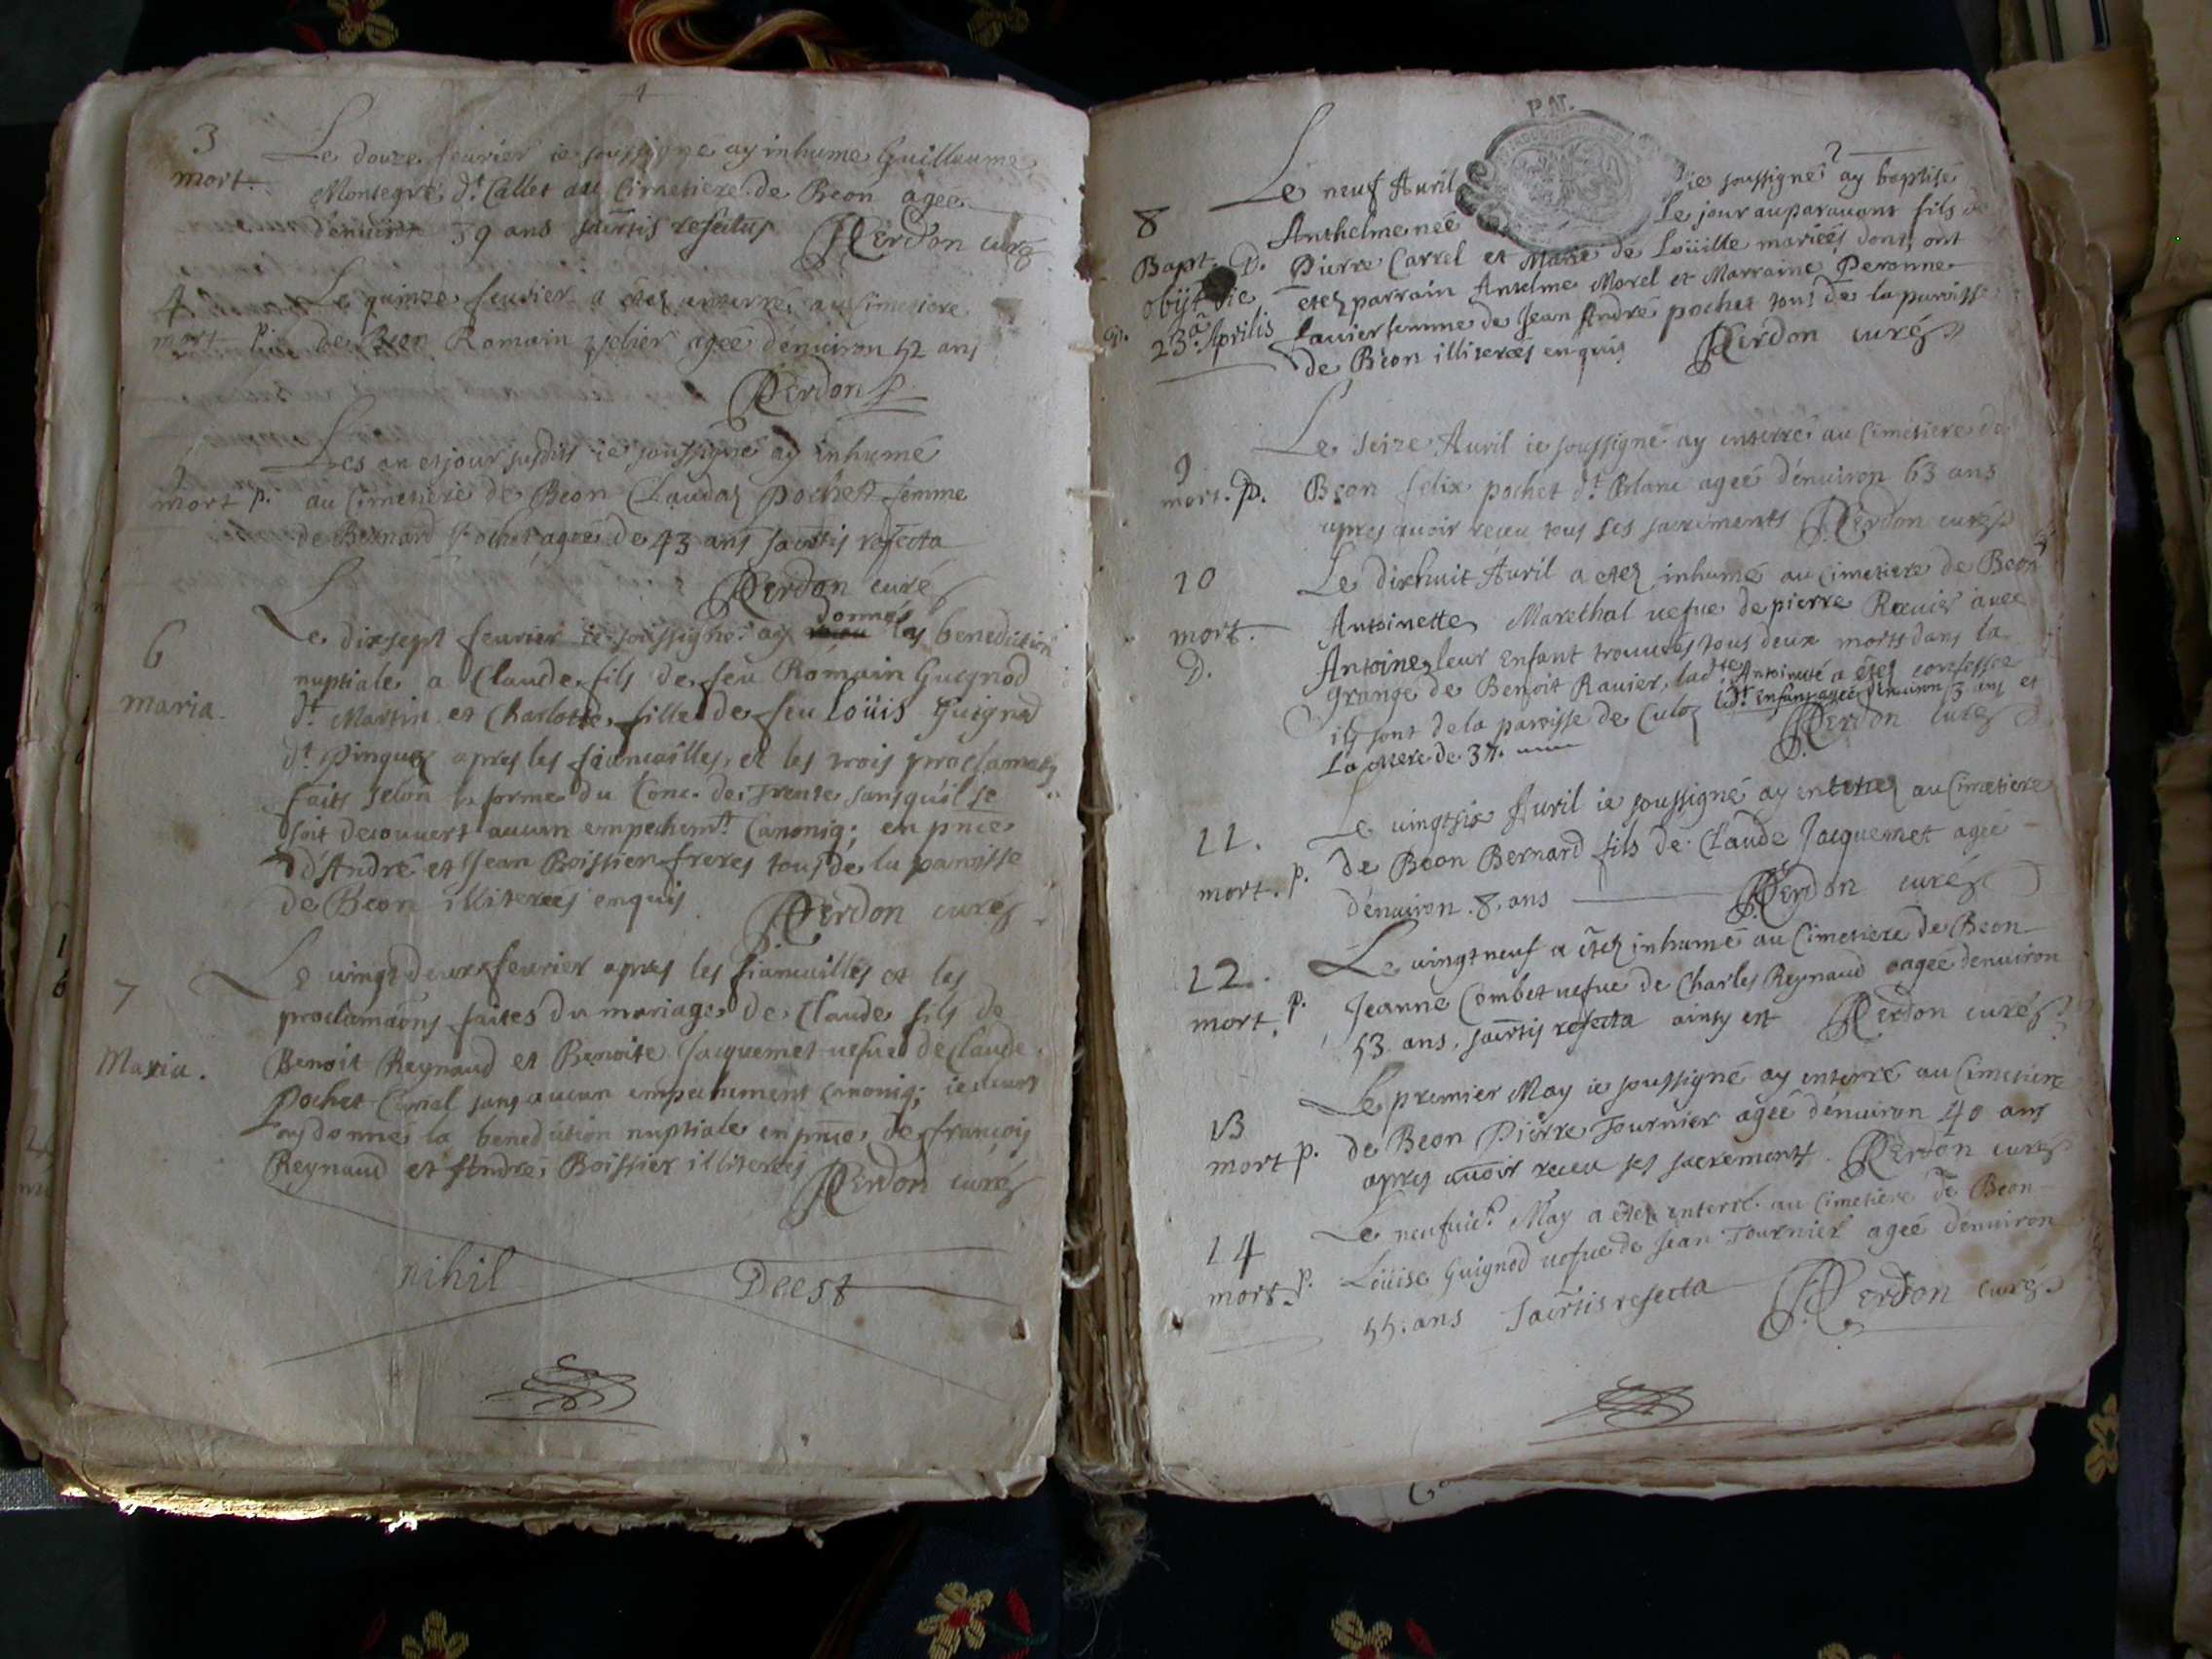 3
mort.
Le douze feurier ie soussigné ay inhumé Guillaume
Montegre d.t Callet au Cimetiere de Beon agée
d'enuiron 39 ans sacrtis refectus Perdon curé
4
mort p.
Le quinze feurier a etez enterré au Cimetiere
de Beon Romain agée d'enuiron 52 ans
Perdon
5
mort p.
Les an et jour susdits ie soussigné ay inhumé
au Cimetiere de Beon Claudaz pochet femme
de Bernard Pochet agée de 43 ans sacrtis refecta
Perdon curé
6
maria.
donnés
Le dixsept feurier ie soussigné ay la benediction
nuptiale a Claude fils de feu Romain Guignod
d.t Martin et Charlotte fille de feu Loüis Guignod
d.t Pinguet apres les fiancailles, et les trois proclamaons
faits selon la forme du Conc. de Trente sans qu'il se
soit decouuert aucun empechem.t Canoniq; en pnce
d'André et Jean Boissien freres tous de la paroisse
de Beon illiterées enquis Perdon curé
7
Maria.
Le uingt deux feurier apres les fiancailles et les
proclamaons faites du mariage de Claude fils de
Benoit Reynaud et Benoite Jacquemet uefue de Claude
Pochet sans aucun empechement canoniq; ie leurs
ay donné la benediction nuptiale en pnce de françois
Reynaud et André Boissier illiterées Perdon curé
nihil Deest
P.M.
8
Bapt. D.
obijt die
23.a Aprilis
Le neuf Auril ie soussigné ay baptisé
Anthelme neé Le jour auparauant fils de
Pierre Carrel et Marie de Loüille mariées dont ont
etez parrain Antelme Morel et Marraine Peronne
Rauier femme de Jean André pochet tous de la paroisse
de Beon illiterées enquis Perdon curé
9
mort. p.
Le seize Auril ie soussigné ay enterré au Cimetiere de
Beon felix pochet d.t Blanc agée d'enuiron 63 ans
apres auoir receu tous ses sacrements Perdon curé
10
mort.
D.
Le dixhuit Auril a etez inhumé au Cimetiere de Beon
Antoinette Marethal uefue de pierre Rauier auec
Antoine leur Enfant trouués tous deux morts dans la
Grange de Benoit Rauier, ladte Antoinette a etez confessée
ils sont de la paroisse de Culoz led.t Enfant agée d'enuiron 3 ans et
La Mere de 37. Perdon curé
11.
mort. p.
Le uingtsix Auril ie soussigné ay enterez au Cimetiere
de Beon Bernard fils de Claude Jacquemet agée
d'enuiron .8. ans Perdon curé
12.
mort. p.
Le uingtneuf a etez inhumé au Cimetiere de Beon
Jeanne Combet uefue de Charles Reynaud agée denuiron
53. ans, sacrtis refecta ainsy est Perdon curé
13
mort p.
Le premier May ie soussigné ay enterré au Cimetiere
de Beon Pierre Tournier agée d'enuiron 40 ans
apres auoir receu ses sacrements. Perdon curé
14
mort. p.
Le May a etez enterré au Cimetiere de Beon
Loüise Guignod uefue de Jean Tournier agée d'enuiron
55. ans Sacrtis refecta Perdon curé